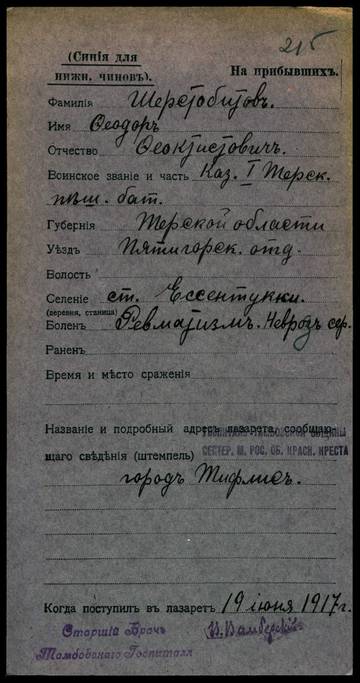 215
(Синія для
нижн. чиновъ).
На прибывшихъ.
Фамилія Шерстобитовъ.
Имя Ѳеодоръ
Отчество Ѳеоктистовичъ.
Воинское званіе и часть Каз. I Терск.
пѣш. бат.
Губернія Терской области
Уѣздъ Пятигорск. отд.
Волость
Селеніе ст. Ессентукки.
(деревня, станица)
Боленъ Ревматизмъ. Неврозъ сер.
Раненъ
Время и мѣсто сраженія
Названіе и подробный адресъ лазарета, сообщаю-
ГОСПИТАЛЬ ТАМБОВСКОЙ ОБЩИНЫ
щаго свѣдѣнія (штемпель) СЕСТЕР. М. РОС. ОБ. КРАСН. КРЕСТА
городъ Тифлисъ.
Когда поступил въ лазаретъ 19 іюня 1917 г.
Старшій Врачъ
Тамбовскаго Госпиталя